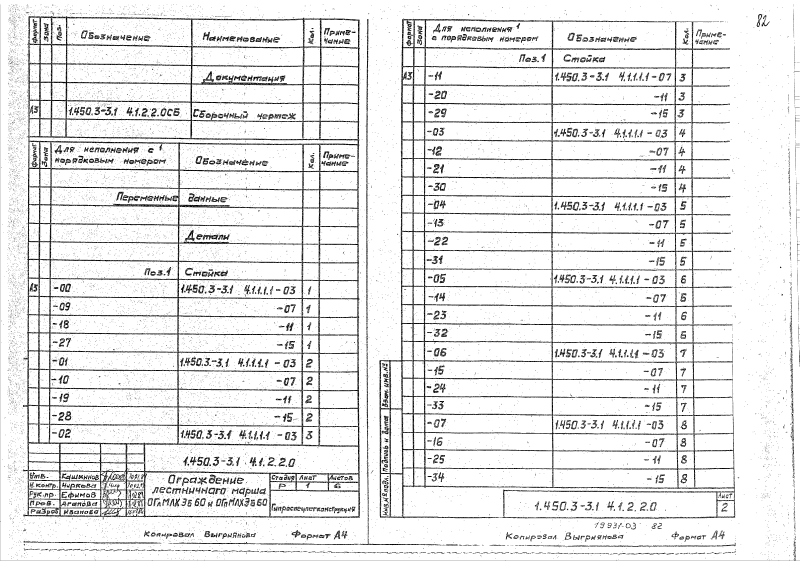 82
Формат Зона Поз. Обозначение Наименование Кол. Приме-чание
Документация
А3 1.450.3-3.1 4.1.2.2.0СБ Сборочный чертеж
Формат Зона Для исполнения с порядковым номером 1 Обозначение Кол. Приме-чание
Переменные данные
Детали
Поз.1 Стойка
А3 -00 1.450.3-3.1 4.1.1.1.1 -03 1
-09 -07 1
-18 -11 1
-27 -15 1
-01 1.450.3-3.1 4.1.1.1.1 -03 2
-10 -07 2
-19 -11 2
-28 -15 2
-02 1.450.3-3.1 4.1.1.1.1 -03 3
1.450.3-3.1 4.1.2.2.0
Утв. Кашкинов
Н.контр. Чиркова
Рук.пр. Ефимов
Пров. Агапова
Разраб Иванова
Ограждение
лестничного марша
Стадия Лист Листов
Р 1 6
Копировал Выгриянова Формат А4
Формат Зона Для исполнения с порядковым номером 1 Обозначение Кол. Приме-чание
Поз.1 Стойка
А3 -11 1.450.3-3.1 4.1.1.1.1 -07 3
-20 -11 3
-29 -15 3
-03 1.450.3-3.1 4.1.1.1.1 -03 4
-12 -07 4
-21 -11 4
-30 -15 4
-04 1.450.3-3.1 4.1.1.1.1 -03 5
-13 -07 5
-22 -11 5
-31 -15 5
-05 1.450.3-3.1 4.1.1.1.1 -03 6
-14 -07 6
-23 -11 6
-32 -15 6
-06 1.450.3-3.1 4.1.1.1.1 -03 7
-15 -07 7
-24 -11 7
-33 -15 7
-07 1.450.3-3.1 4.1.1.1.1 -03 8
-16 -07 8
-25 -11 8
-34 -15 8
Инв.№ подл. Подпись и дата Взам. инв.№
1.450.3-3.1 4.1.2.2.0
Лист
2
19931-03 82
Копировал Выгриянова Формат А4